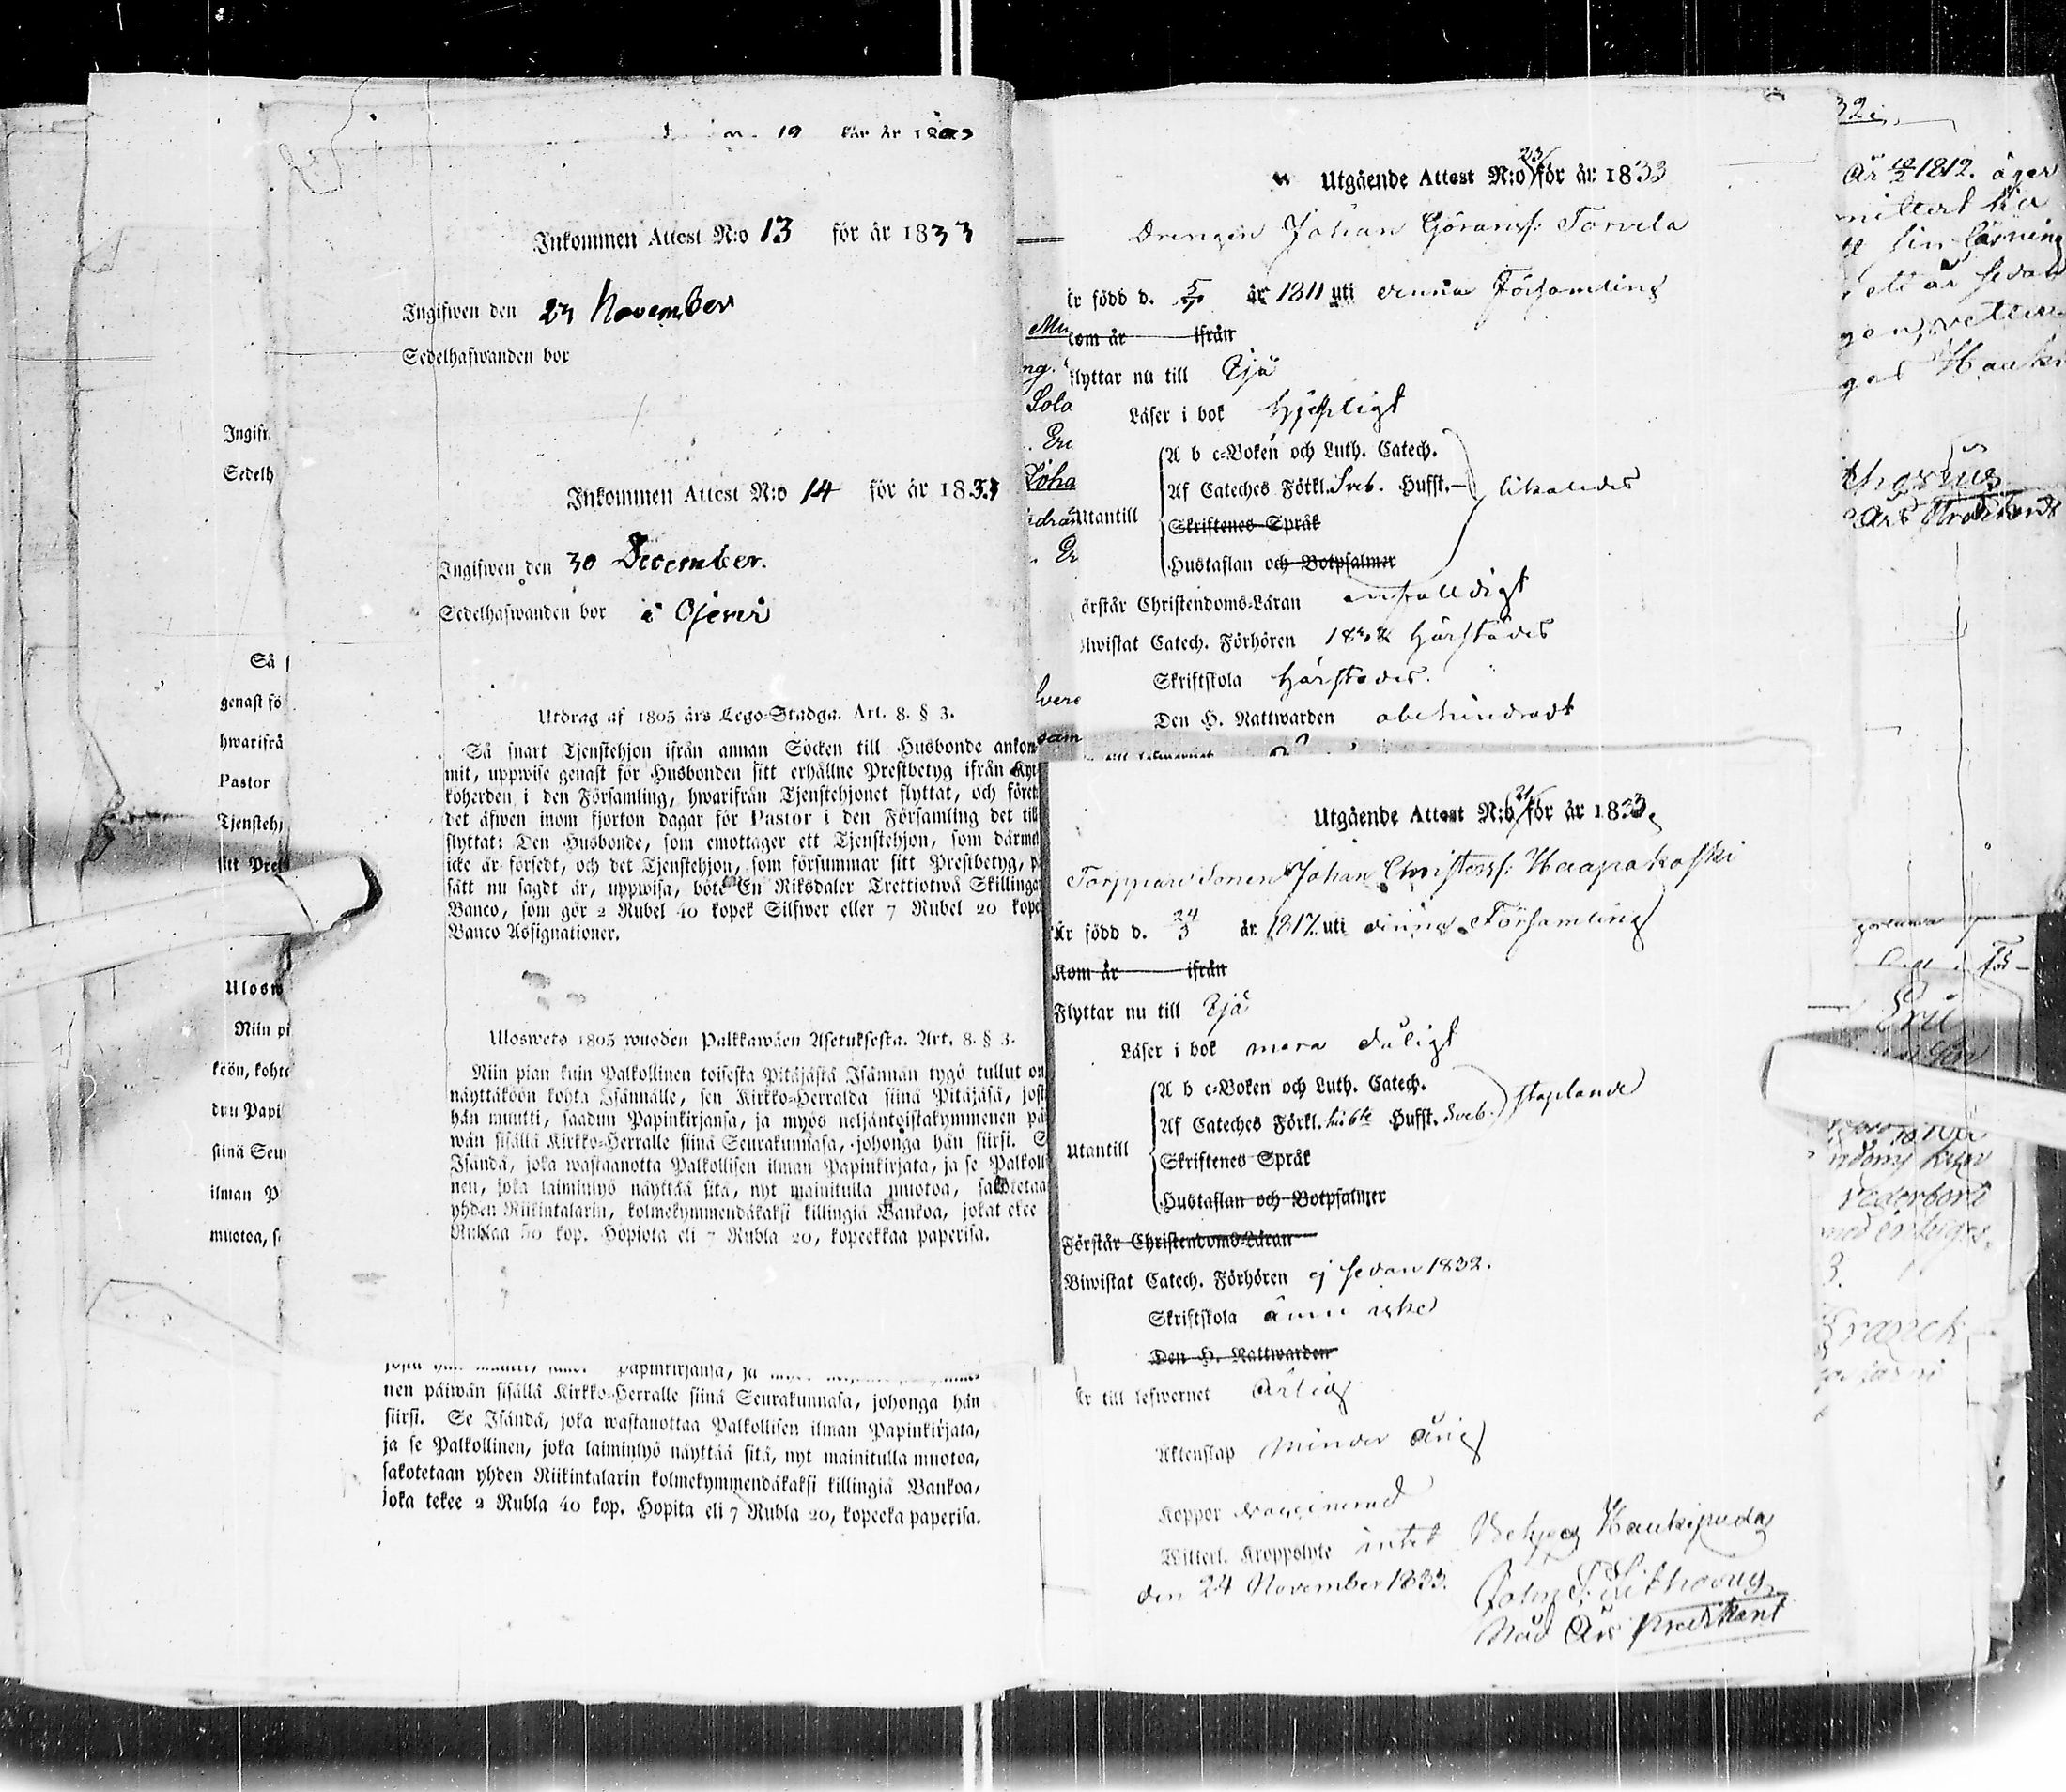 Inkommen Attest N:o 13 för år 1833
Ingifwen den 23 November
Sedelhafwanden bor
Inkommen Attest N:o 14 för år 1833
Ingifwen den 30 December.
Sedelhafwanden bor i Ojervi
Utdrag af 1805 års Lego-Stadga. Art. 8. § 3.
Så snart Tjenstehjon ifrån annan Socken till Husbonde ankom
mit, uppwise genast för Husbonden sitt erhållne Prestbetyg ifrån Kyr
koherden i den Församling, hwarifrån Tjenstehjonet flyttat, och förete
det äfwen inom fjorton dagar för Pastor i den Församling det till
flyttat: Den Husbonde, som emottager ett Tjenstehjon, som därmed
icke är försedt, och det Tjenstehjon, som försummar sitt Prestbetyg, p
sätt nu sagdt är, uppwisa, böte En Riksdaler Trettiotwå Skillinge
Banco, som gör 2 Rubel 40 kopek Silfwer eller 7 Rubel 20 kope
Banco Assignationer.
Uloswets 1805 wuoden Palkkawäen Asetuksesta. Art. 8. § 3.
Niin pian kuin Palkollinen toisesta Pitäjästä Isännän tygö tullut on
näyttäköön kohta Isännälle, sen Kirkko-Herralda siinä Pitäjäsä, josta
hän muutti, saadun Papinkirjansa, ja myös neljäntoistakymmenen päi
wän sisällä Kirkko-Herralle siinä Seurakunnasa, johonga hän siirsi. S
Isändä, joka wastaanotta Palkollisen ilman Papinkirjata, ja se Palkolli
nen, joka laiminlyö näyttää sitä, nyt mainitulla muotoa, sakotetaa
yhden Riikintalarin, kolmekymmendäkaksi killingiä Bankoa, jokat ekee
Rublaa 50 kop. Hopiota eli 7 Rubla 20, kopeekkaa paperisa.
nen päiwän sisällä Kirkko-Herralle siinä Seurakunnasa, johonga hän
siirsi. Se Isändä, joka wastanottaa Palkollisen ilman Papinkirjata,
ja se Palkollinen, joka laiminlyö näyttää sitä, nyt mainitulla muotoa,
sakotetaan yhden Riikintalarin kolmekymmendäkaksi killingiä Bankoa,
joka tekee 2 Rubla 40 kop. Hopita eli 7 Rubla 20, kopeeka paperisa.
Ingifr
Sedelh
Så
genast fö
hwarifrå
Pastor
Tjenstehj
sitt Pre
Ulosw
Niin pi
köön, koht
dun Papi
siinä Seur
ilman P
muotoa, s
Utgående Attest N:o 23 för år 1833
Drengen Johan Göranss: Torvela
är född d. 5 år 1811 uti denna Församling
kom år ifrån
flyttar nu till Ijå
Läser i bok hjelpligt
A b c-Boken och Luth. Catech.
Af Cateches Förkl. Sveb. Hufst. likaledes
Utantill
Skriftenes Språk
Hustaflan och Botpsalmer
örstår Christendoms-Läran enfalldigt
iwistat Catech. Förhören 1832 härstädes
Skriftskola härstädes.
Den H. Nattwarden obehindradt
Utgående Attest N:o 24 för år 1833.
Torppare Sonen Johan Christerss: Haapakoski
är född d. 24/3 år 1817. uti denna Församling
Kom år ifrån
Flyttar nu till Ijå
Läser i bok mera dåligt
A b c-Boken och Luth. Catech.
Af Cateches Förkl. Hufst. Sveb. staplande
Utantill
Skriftenes Språk
Hustaflan och Botpsalmer
Förstår Christendoms-Läran
Biwistat Catech. Förhören ej sedan 1832.
Skriftskola ännu icke
Den H. Nattwarden
är till lefwernet ärlig
Äktenskap Minder årig
Koppor vaccinerad
Witterl. Kroppslyte intet Betyga Haukipudas
den 24 November 1833.
Nåd Års Predikant
år 1812. äger